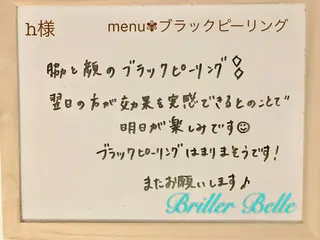 h様 menu✾ブラックピーリング
脇と顔のブラックピーリング◇◇
翌日の方が効果を実感できるとのことで
明日が楽しみです☺
ブラックピーリングはまりそうです!
またお願いします♪
Briller Belle